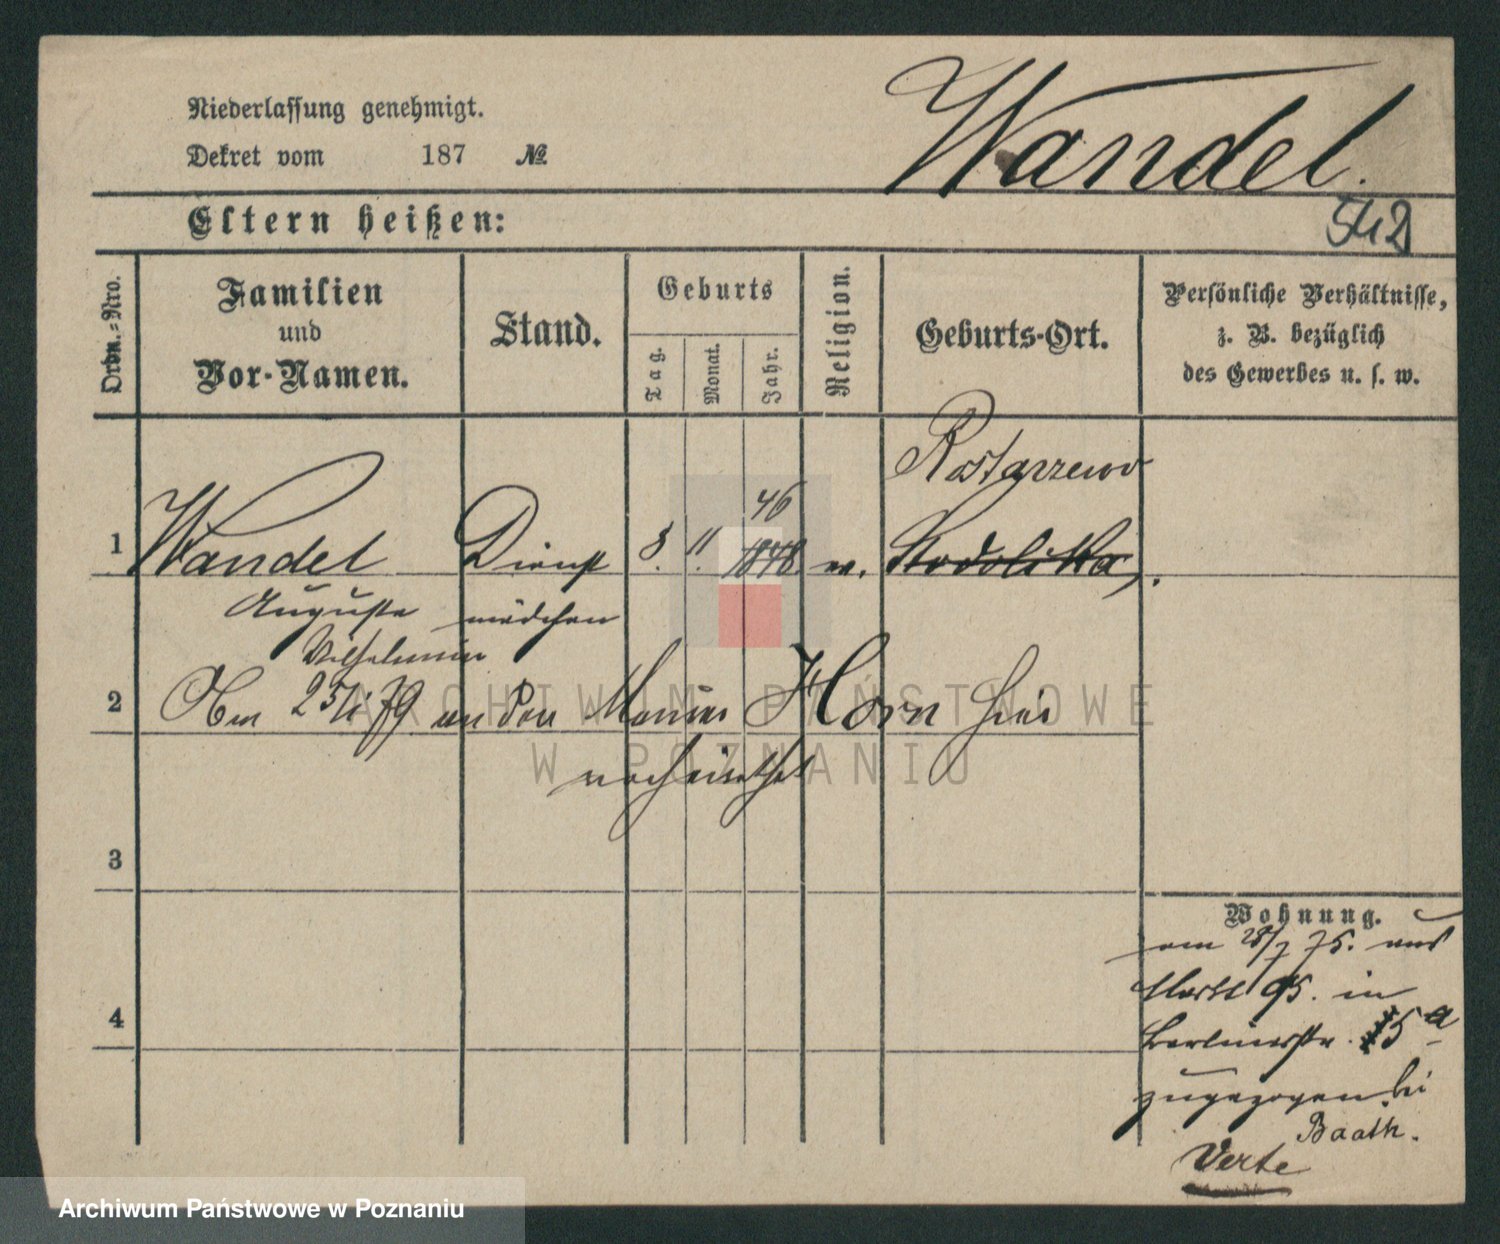 Niederlassung genehmigt.
Dekret vom 187 №
Wandel.
Eltern heißen:
542
Ordn.-Nro.
Familien
und
Vor-Namen.
Stand.
Geburts
Tag.
Monat.
Jahr.
Religion.
Geburts-Ort.
Persönliche Verhältnisse,
z. B. bezüglich
des Gewerbes u. s. w.
Rostarzewo
46
1 Wandel Dienst 8. 11. 1848 ev.
Auguste mädchen
Wilhelmine
2 25/1 79 an den Maurer Horn hier
verheirathet
3
4
Wohnung.
am 28/7 75. aus
Markt 95. in
Berlinerstr. 15 a
zugezogen. bei
Baath.
Verte
ARCHIWUM PAŃSTWOWE
W POZNANIU
Archiwum Państwowe w Poznaniu